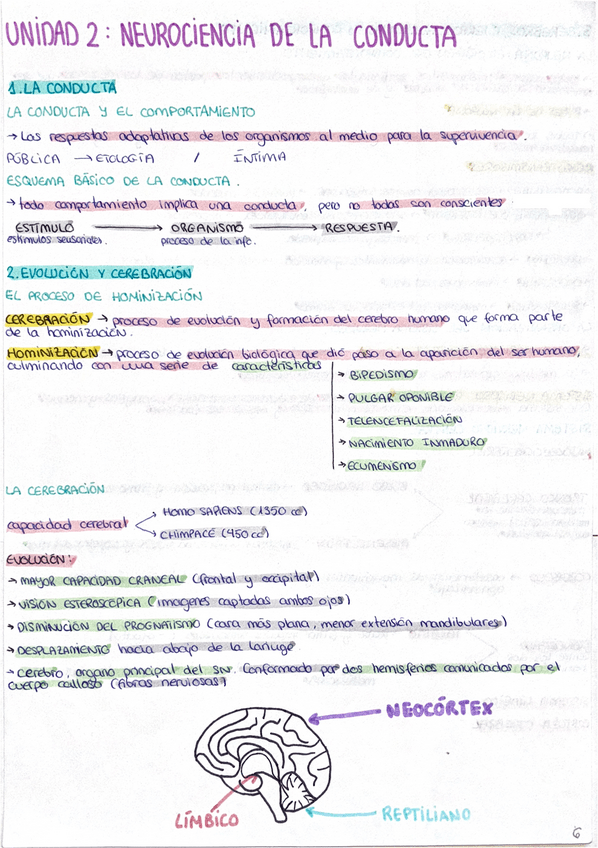 UNIDAD 2: NEUROCIENCIA DE LA CONDUCTA
1. LA CONDUCTA
LA CONDUCTA Y EL COMPORTAMIENTO
→ Las respuestas adaptativas de los organismos al medio para la supervivencia.
PÚBLICA → ETOLOGÍA / ÍNTIMA
ESQUEMA BÁSICO DE LA CONDUCTA.
→ todo comportamiento implica una conducta, pero no todas son conscientes
ESTÍMULO → ORGANISMO → RESPUESTA.
estímulos sensoriales. proceso de la info.
2. EVOLUCIÓN Y CEREBRACIÓN
EL PROCESO DE HOMINIZACIÓN
CEREBRACIÓN → proceso de evolución y formación del cerebro humano que forma parte
de la hominización.
HOMINIZACIÓN → proceso de evolución biológica que dió paso a la aparición del ser humano,
culminando con una serie de características
→ BIPEDISMO
→ PULGAR OPONIBLE
→ TELENCEFALIZACIÓN
→ NACIMIENTO INMADURO
→ ECUMENISMO
LA CEREBRACIÓN
capacidad cerebral
HOMO SAPIENS (1350 cc)
CHIMPACÉ (450 cc)
EVOLUCIÓN:
→ MAYOR CAPACIDAD CRANEAL (frontal y occipital)
→ VISIÓN ESTEROSCÉPICA (imagenes captadas ambos ojos)
→ DISMINUCIÓN DEL PROGNATISMO (cara más plana, menor extensión mandibulares)
→ DESPLAZAMIENTO hacia abajo de la laringe
→ cerebro, organo principal del SN. Conformado por dos hemisferios comunicados por el
cuerpo calloso (fibras nerviosas)
NEOCÓRTEX
LÍMBICO
REPTILIANO
6